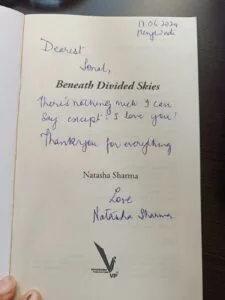 17.06.2024
Dearest
Sonal,
Beneath Divided Skies
There's nothing much I can
say except 'I love you'!
Thankyou for everything
Natasha Sharma
Love
Natasha Sharma
VP